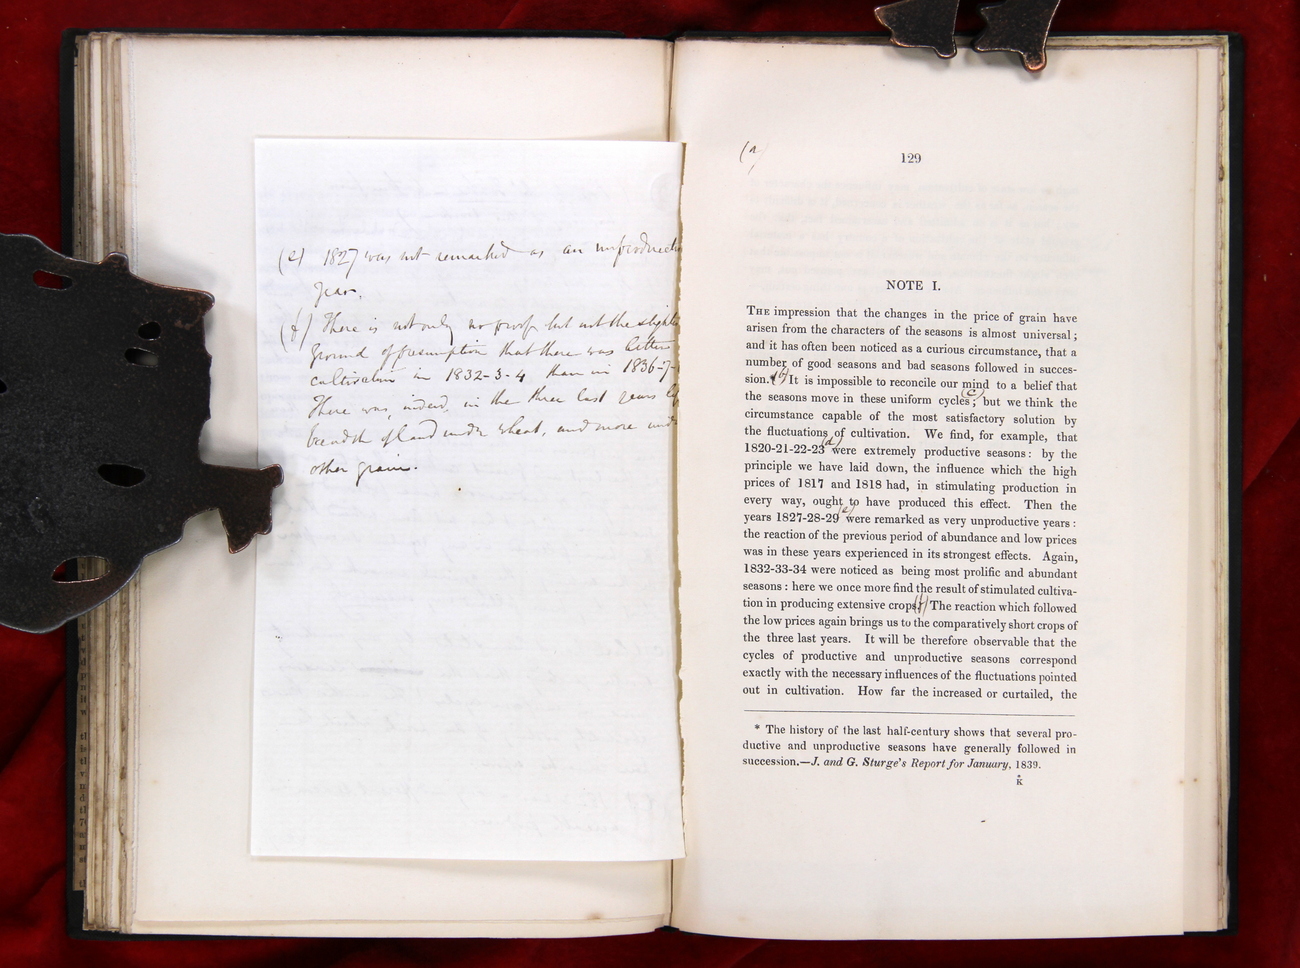 (e) 1827 was not remarked as an unproducti
year.
(f) There is not only no proof but not the slight
ground of presumption that there was better
cultivation in 1832-3-4 than in 1836-7-
There was, indeed, in the three last years
breadth of land under wheat, and more und
other grain.
(a)
129
NOTE I.
THE impression that the changes in the price of grain have
arisen from the characters of the seasons is almost universal;
and it has often been noticed as a curious circumstance, that a
number of good seasons and bad seasons followed in succes-
sion.* (b) It is impossible to reconcile our mind to a belief that
the seasons move in these uniform cycles; (c) but we think the
circumstance capable of the most satisfactory solution by
the fluctuations of cultivation. We find, for example, that
1820-21-22-23 (d) were extremely productive seasons: by the
principle we have laid down, the influence which the high
prices of 1817 and 1818 had, in stimulating production in
every way, ought to have produced this effect. Then the
years 1827-28-29 (e) were remarked as very unproductive years:
the reaction of the previous period of abundance and low prices
was in these years experienced in its strongest effects. Again,
1832-33-34 were noticed as being most prolific and abundant
seasons: here we once more find the result of stimulated cultiva-
tion in producing extensive crops. (f) The reaction which followed
the low prices again brings us to the comparatively short crops of
the three last years. It will be therefore observable that the
cycles of productive and unproductive seasons correspond
exactly with the necessary influences of the fluctuations pointed
out in cultivation. How far the increased or curtailed, the
* The history of the last half-century shows that several pro-
ductive and unproductive seasons have generally followed in
succession.—J. and G. Sturge's Report for January, 1839.
K